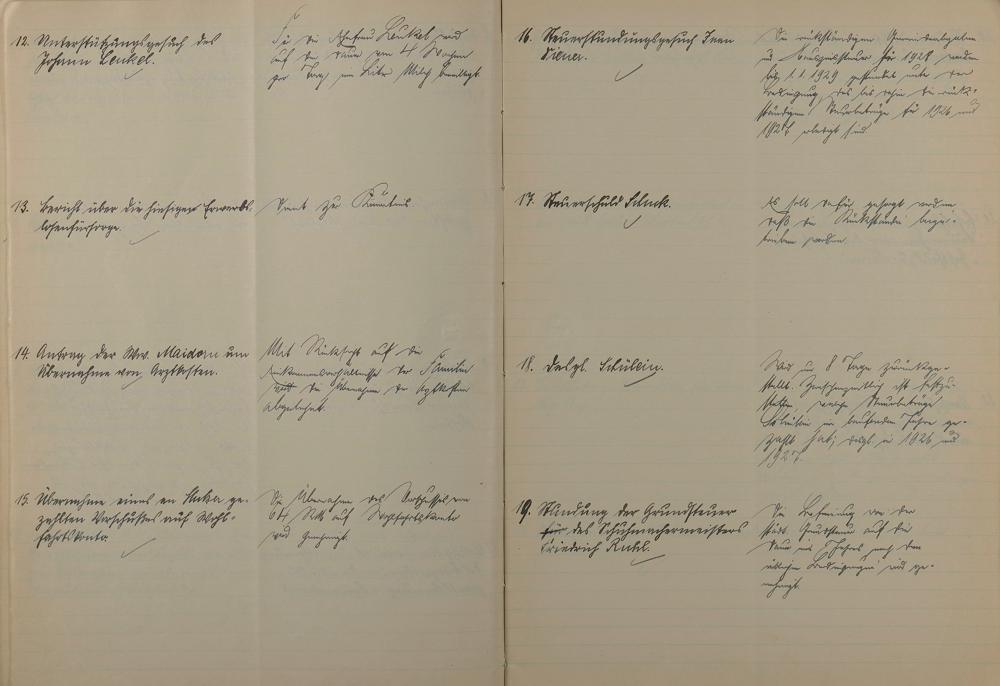 12. Unterstützungsgesuch des
Johann Leukel.
Für die Ehefrau Leukel wird
auf die Dauer von 4 Wochen
pro Tag ein Liter Milch bewilligt.
13. Bericht über die hiesigen Erwerbs-
losenfürsorge.
Dient zur Kenntnis.
14. Antrag der Ww. Maidorn um
Übernahme von Arztkosten.
Mit Rücksicht auf die
Einkommensverhältnisse der Familie
wird die Übernahme der Arztkosten
abgelehnt.
15. Übernahme eines an ge-
zahlten Vorschußes auf Wohl-
fahrtskonto.
Die Übernahme des Vorschusses von
64 RM auf Wohlfahrtskonto
wird genehmigt.
16. Steuerstundungsgesuch Iwan
Die rückständigen Gemeindeabgaben
u. Hauszinssteuer für 1928 werden
bis 1.1.1929 gestundet unter der
Bedingung, das bis dahin die rück-
ständigen Steuerbeträge für 1926 und
1927 erledigt sind.
17. Steuerschuld
Es soll dafür gesorgt werden
daß die Rückstände beige-
trieben werden.
18. Desgl. Schülein.
Wird um 8 Tage zurückge-
stellt. Zwischenzeitlich ist festzu-
stellen, welche Steuerbeträge
Schülein im laufenden Jahre ge-
zahlt hat; desgl. in 1926 und
1927.
19. Stundung der Grundsteuer
für des Schuhmachermeisters
Friedrich
Die Befreiung von der
städt. Grundsteuer auf die
Dauer eines Jahres nach den
üblichen Bedingungen wird ge-
nehmigt.